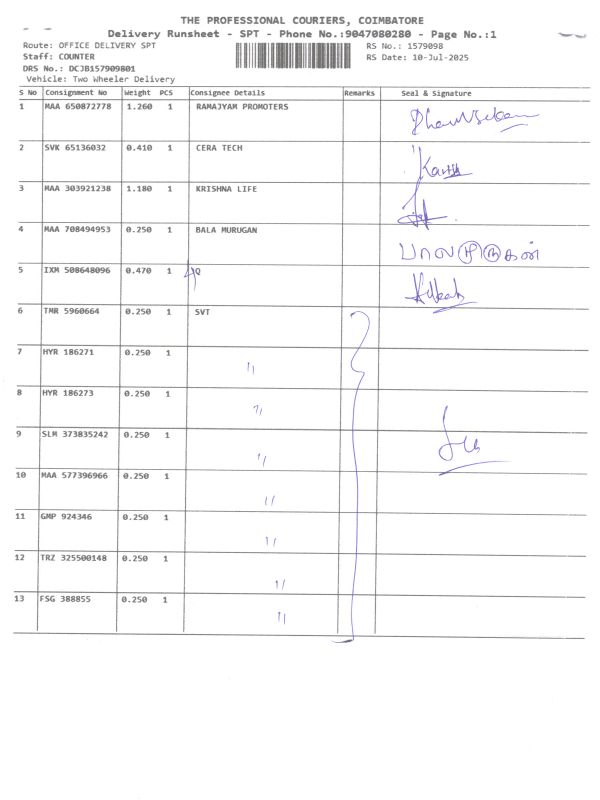 THE PROFESSIONAL COURIERS, COIMBATORE
Delivery Runsheet - SPT - Phone No.:9047080280 - Page No.:1
Route: OFFICE DELIVERY SPT RS No.: 1579098
Staff: COUNTER RS Date: 10-Jul-2025
DRS No.: DCJB157909801
Vehicle: Two Wheeler Delivery
S No Consignment No Weight PCS Consignee Details Remarks Seal & Signature
1 MAA 650872778 1.260 1 RAMAJYAM PROMOTERS
2 SVK 65136032 0.410 1 CERA TECH
3 MAA 303921238 1.180 1 KRISHNA LIFE
4 MAA 708494953 0.250 1 BALA MURUGAN பாலமுருகன்
5 IXM 508648096 0.470 1
6 TMR 5960664 0.250 1 SVT
7 HYR 186271 0.250 1 "
8 HYR 186273 0.250 1 "
9 SLM 373835242 0.250 1 "
10 MAA 577396966 0.250 1 "
11 GMP 924346 0.250 1 "
12 TRZ 325500148 0.250 1 "
13 FSG 388855 0.250 1 "